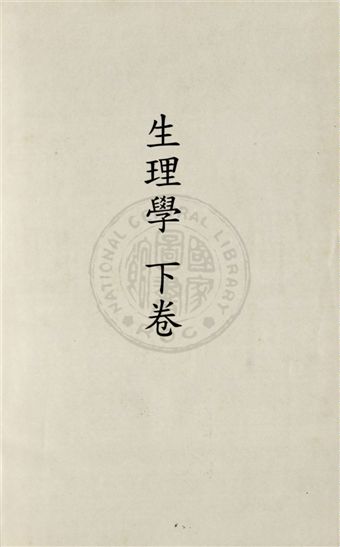 生理學 下卷
NATIONAL CENTRAL LIBRARY
國家圖書館
ROC